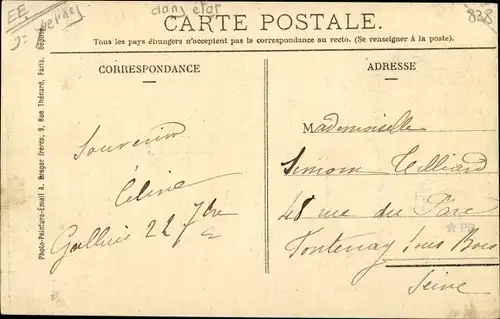 dans état
838
CARTE POSTALE.
Tous les pays étrangers n'acceptent pas la correspondance au recto. (Se renseigner à la poste).
CORRESPONDANCE
ADRESSE
Photo-Peinture-Email A. Breger frères, 9, Rue Thénard, Paris.
Souvenir
Céline
Galluis 22 7bre
Mademoiselle
Simone Tilliard
48 rue du Parc
Fontenay sous Bois
Seine